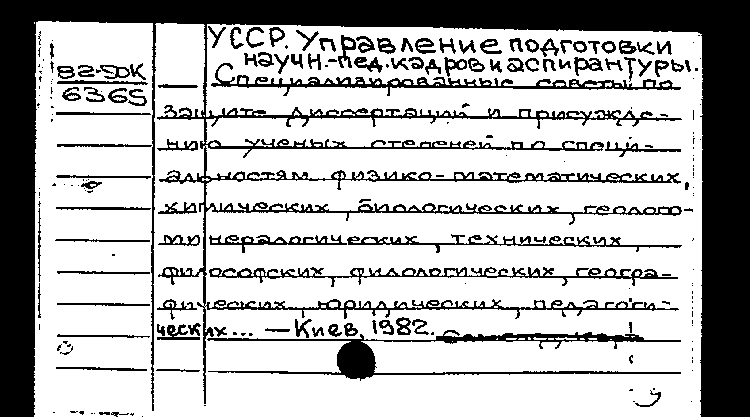 УССР. Управление подготовки
научн.-пед. кадров и аспирантуры.
82-50К
6365
Специализированные советы по
защите диссертаций и присужде-
нию ученых степеней по специ-
альностям физико-математических,
химических, биологических, геолого-
минералогических, технических,
философских, филологических, геогра-
фических, юридических, педагоги-
ческих... — Киев, 1982.